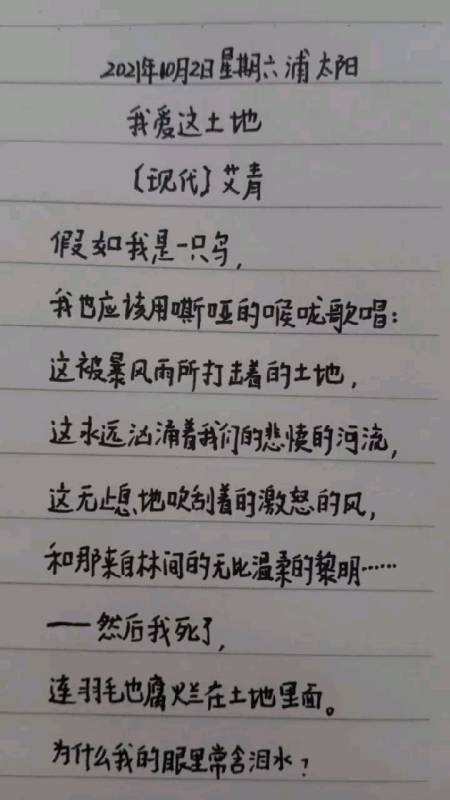 2021年10月2日星期六浦太阳
我爱这土地
〔现代〕艾青
假如我是一只鸟,
我也应该用嘶哑的喉咙歌唱:
这被暴风雨所打击着的土地,
这永远汹涌着我们的悲愤的河流,
这无止息地吹刮着的激怒的风,
和那来自林间的无比温柔的黎明……
——然后我死了,
连羽毛也腐烂在土地里面。
为什么我的眼里常含泪水?